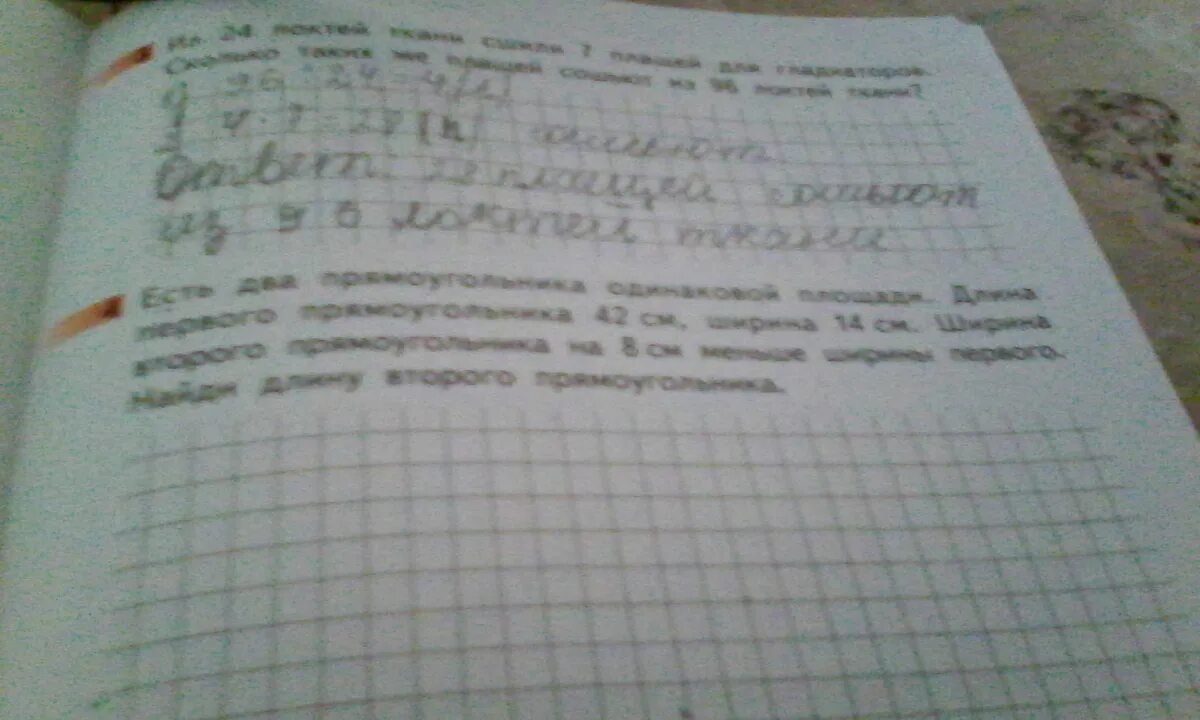 Из 24 локтей ткани сшили 7 плащей для гладиаторов.
Сколько таких же плащей сошьют из 96 локтей ткани?
96 : 24 = 4
4 · 7 = 28 (п) сошьют
Ответ: 28 плащей сошьют
из 96 локтей ткани
Есть два прямоугольника одинаковой площади. Длина
первого прямоугольника 42 см, ширина 14 см. Ширина
второго прямоугольника на 8 см меньше ширины первого.
Найди длину второго прямоугольника.